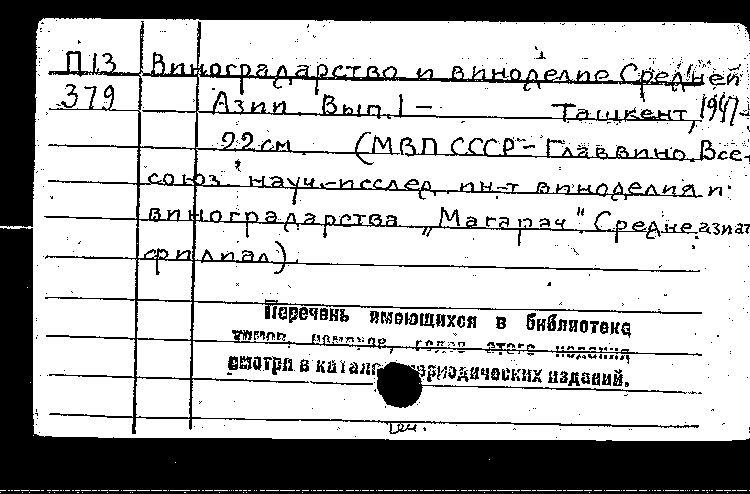 П13 Виноградарство и виноделие Средней
379 Азии. Вып. 1 – Ташкент, 1947-
22 см. (МВП СССР – Главвино. Все-
союз. науч.-исслед. ин-т виноделия и
виноградарства „Магарач". Среднеазиат.
филиал)
Перечень имеющихся в библиотеке
томов, номеров, годов этого издания
смотри в катало периодических изданий.